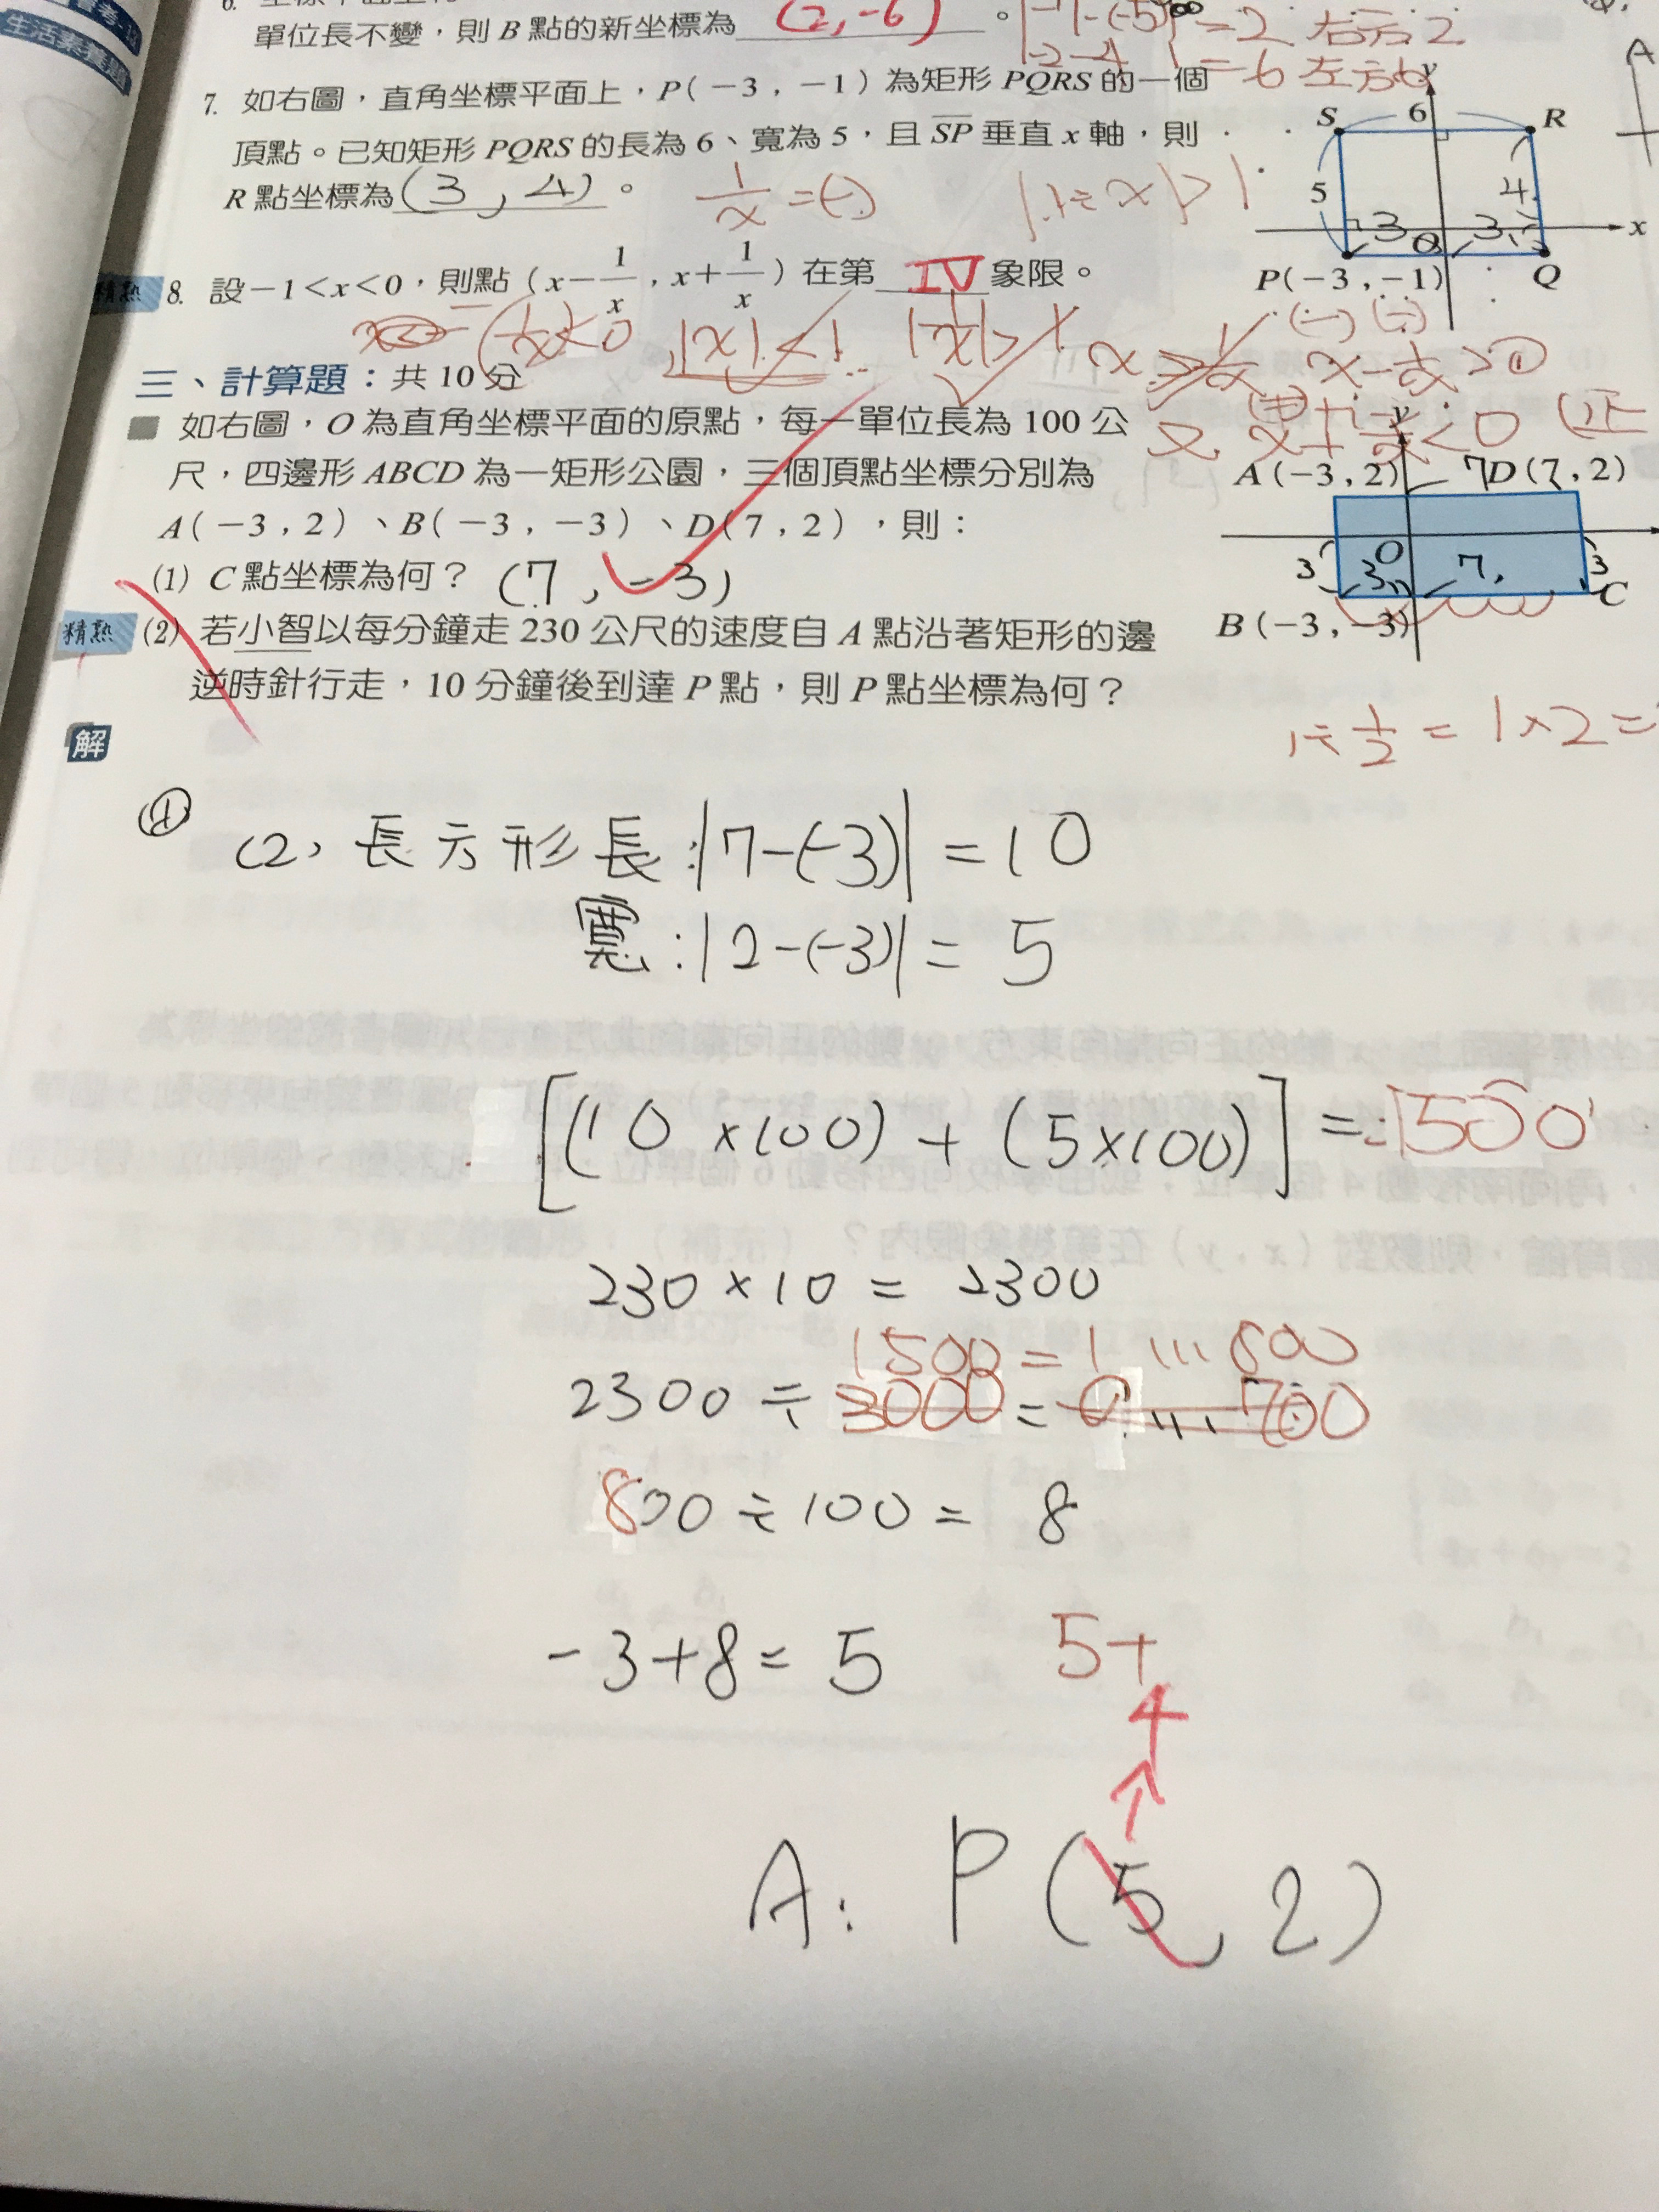 生活素養題
單位長不變，則 B 點的新坐標為 (2,-6) 。
= 2 右方2
= 6 左方6
7. 如右圖，直角坐標平面上，P(－3，－1) 為矩形 PQRS 的一個
頂點。已知矩形 PQRS 的長為 6、寬為 5，且 SP 垂直 x 軸，則
R 點坐標為 (3,4) 。
1/x =(-)
|1÷x|>1
S 6 R
5 4
3 3 x
O
P(－3,－1) Q
y
精熟 8. 設－1<x<0，則點 (x－1/x，x＋1/x) 在第 IV 象限。
|x|<1 |1/x|>1
x－1/x>0
又 x+1/x<0
三、計算題：共 10 分
如右圖，O 為直角坐標平面的原點，每一單位長為 100 公
尺，四邊形 ABCD 為一矩形公園，三個頂點坐標分別為
A(－3，2)、B(－3，－3)、D(7，2)，則：
(1) C 點坐標為何？ (7,-3)
精熟 (2) 若小智以每分鐘走 230 公尺的速度自 A 點沿著矩形的邊
逆時針行走，10 分鐘後到達 P 點，則 P 點坐標為何？
y
A(－3,2) 7 D(7,2)
O
3 3 7 3
C
B(－3,－3)
1÷1/2=1×2=
解
(2) 長方形長:|7-(-3)|=10
寬:|2-(-3)|=5
[(10×100)+(5×100)]=1500
230×10=2300
1500=1…800
2300÷3000=0…700
800÷100=8
-3+8=5 5+
4
↑
A: P(5,2)